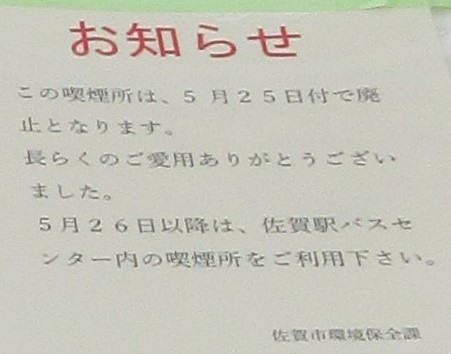 お知らせ
この喫煙所は、５月２５日付で廃
止となります。
長らくのご愛用ありがとうござい
ました。
５月２６日以降は、佐賀駅バスセ
ンター内の喫煙所をご利用下さい。
佐賀市環境保全課